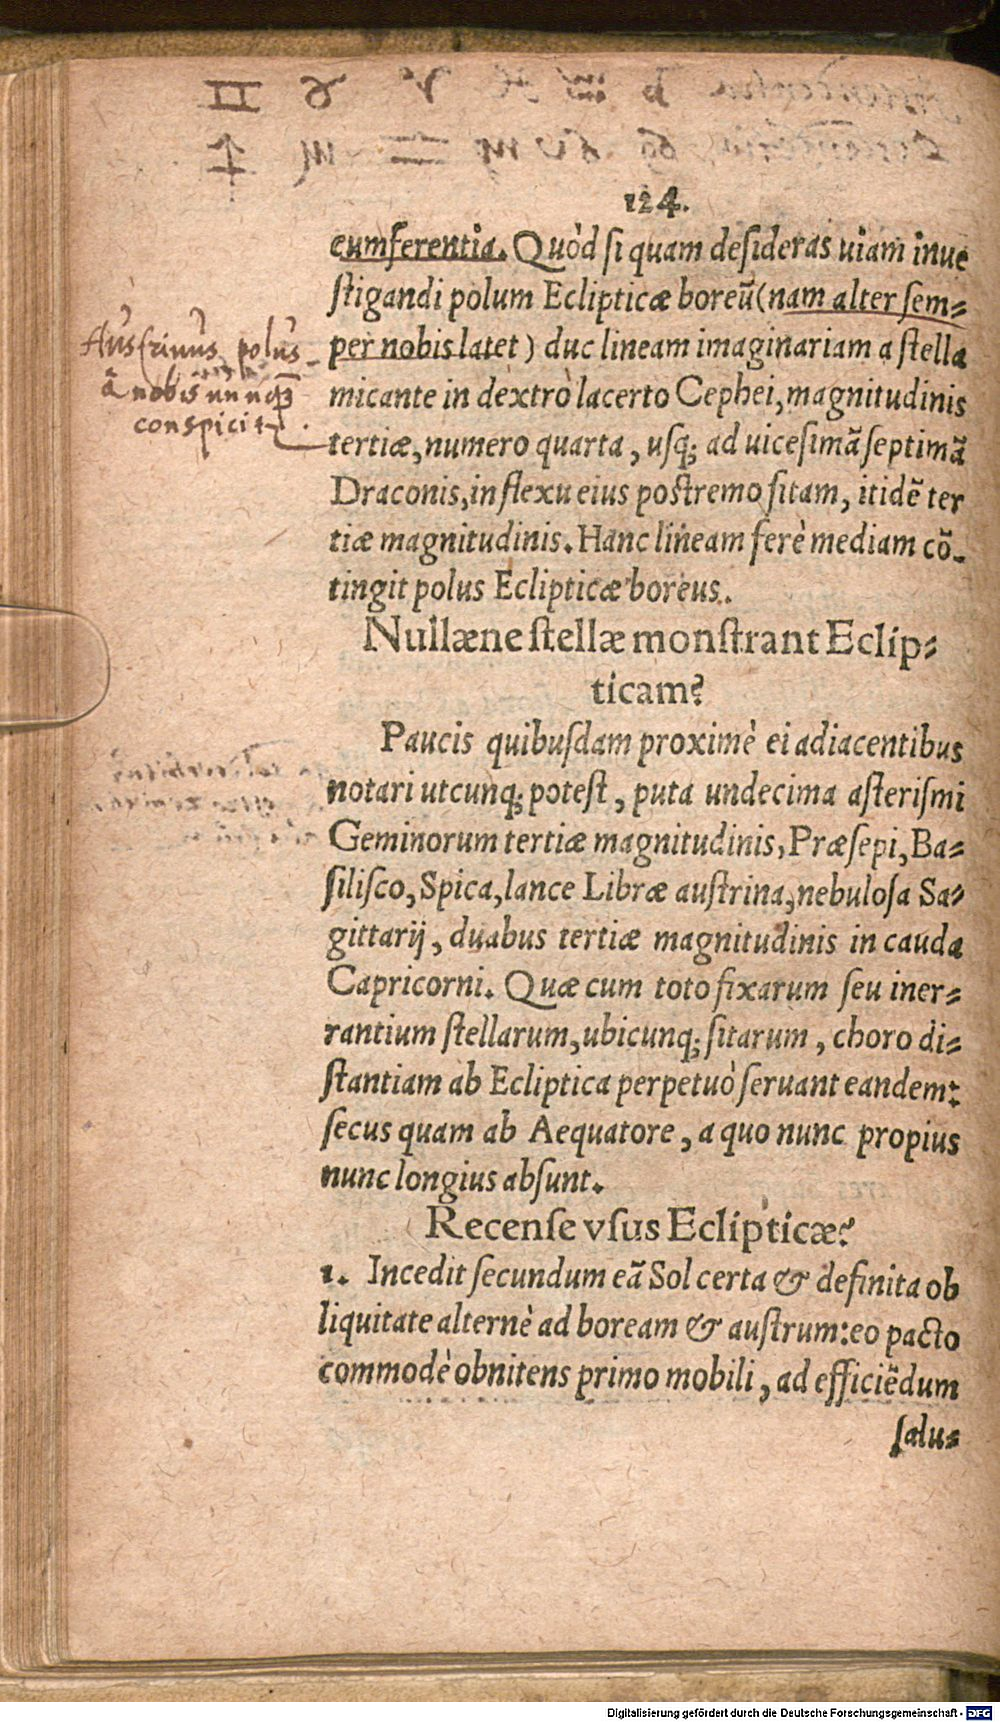 124.
cumferentia. Quòd si quam desideras uiam inue
stigandi polum Eclipticæ boreũ (nam alter sem-
per nobis latet) duc lineam imaginariam a stella
micante in dextro lacerto Cephei, magnitudinis
tertiæ, numero quarta, usq; ad uicesimã septimã
Draconis, in flexu eius postremo sitam, itidẽ ter
tiæ magnitudinis. Hanc lineam ferè mediam cõ-
tingit polus Eclipticæ boreus.
Austrinus polus
â nobis nunq̃
conspicit
Nullæne stellæ monstrant Eclip-
ticam?
Paucis quibusdam proximè ei adiacentibus
notari utcunq; potest, puta undecima asterismi
Geminorum tertiæ magnitudinis, Præsepi, Ba-
silisco, Spica, lance Libræ austrina, nebulosa Sa-
gittarij, duabus tertiæ magnitudinis in cauda
Capricorni. Quæ cum toto fixarum seu iner-
rantium stellarum, ubicunq; sitarum, choro di-
stantiam ab Ecliptica perpetuò seruant eandem:
secus quam ab Aequatore, a quo nunc propius
nunc longius absunt.
Recense vsus Eclipticæ?
1. Incedit secundum eã Sol certa & definita ob
liquitate alternè ad boream & austrum: eo pacto
commodè obnitens primo mobili, ad efficiẽdum
salu-
Digitalisierung gefördert durch die Deutsche Forschungsgemeinschaft - DFG